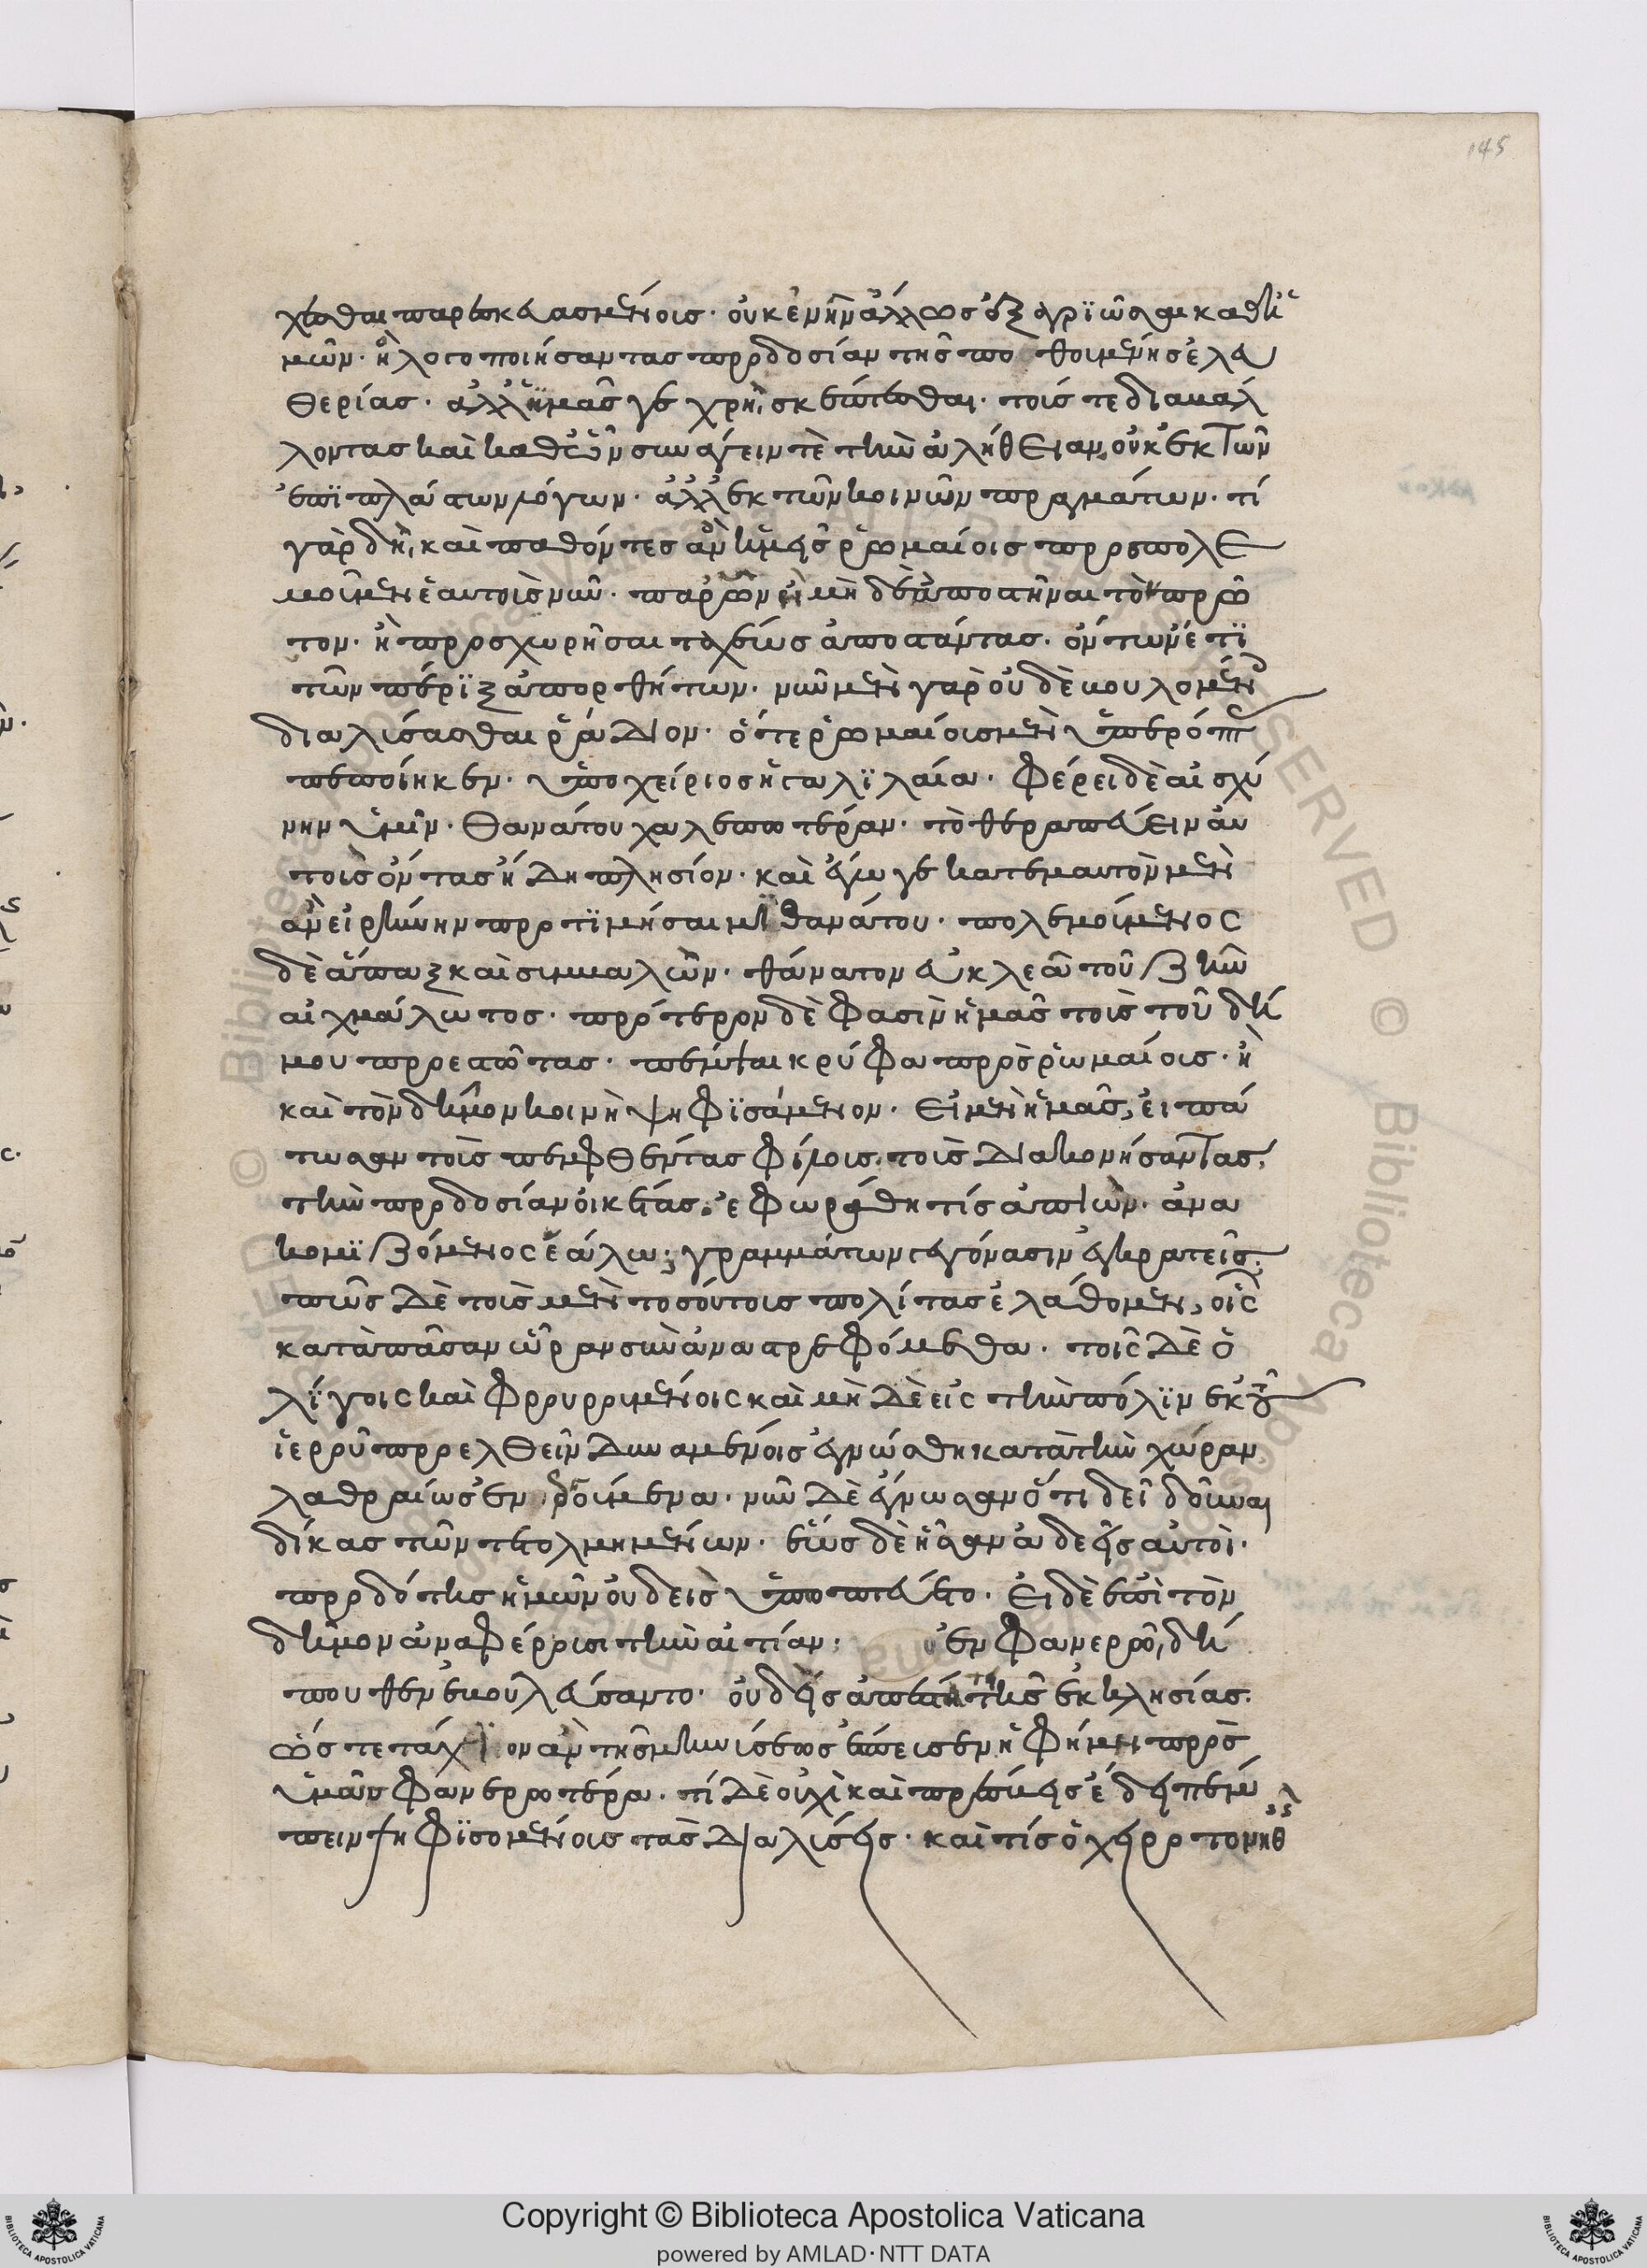 χεσθαι παρεσκευασμένοις· οὐκ ἐνῆν ἄλλως ἐξαγριῶσαι καθ' ἡ
μῶν· ἢ λογοποιήσαντας προδοσίαν τῆς ποθουμένης ἐλευ
θερίας· ἀλλ' ἡμᾶς γε χρὴ σκέπτεσθαι· τούς τε διαβάλ
λοντας καὶ καθ' ὧν συνάγειν τὲ τὴν ἀλήθειαν, οὐκ ἐκ τῶν
ἐπιπλάστων λόγων· ἀλλ' ἐκ τῶν κοινῶν πραγμάτων· τί
γὰρ δὴ, καὶ παθόντες ἂν ἡμεῖς ῥωμαίοις προσπολε
μοῦμεν ἑαυτοὺς νῦν· παρὸν εἰ μὴ δὲ ἀποστῆναι τὸ πρῶ
τον· ἢ προσχωρῆσαι ταχέως ἀποστάντας· ὄντων ἔτι
τῶν πέριξ ἀπορθήτων· νῦν μὲν γὰρ οὐδὲ βουλομέν
διαλύσασθαι ῥάδιον· ὅτε ῥωμαίους μὲν ὑπερόπτ
πεποίηκεν· ὑποχείριος ἡ γαλιλαία· φέρει δὲ αἰσχύ
νην ὑμῖν· θανάτου χαλεπωτέραν· τὸ θεραπεύειν αὐ
τοὺς ὄντας ἤδη πλησίον· καὶ ἔγωγε κατεμαυτὸν μὲν
ἂν εἰρήνην προτιμήσαιμι θανάτου· πολεμούμενος
δὲ ἅπαξ καὶ συμβαλὼν· θάνατον εὐκλεᾶ τοῦ ζῆν
αἰχμάλωτος· πρότερον δὲ φασὶν ἡμᾶς τοὺς τοῦ δή
μου προεστῶτας· πέμψαι κρύφα πρὸς ῥωμαίους· ἢ
καὶ τὸν δῆμον κοινῆ ψηφισάμενον· εἰ μὲν ἡμᾶς, εἰπά
τωσαν τοὺς πεμφθέντας φίλους· τοὺς διακονήσαντας,
τὴν προδοσίαν οἰκέτας· ἐφωράθη τίς ἀπιών· ἀνα
κομιζόμενος ἑάλω; γραμμάτων γεγόνασιν ἐγκρατεῖς·
πῶς δὲ τοὺς μὲν τοσούτους πολίτας ἐλάθομεν, οἷς
κατὰ πᾶσαν ὥραν συνὰναστρεφόμεθα· τοῖς δὲ ὀ
λίγοις καὶ φρουρουμένοις καὶ μὴ δὲ εἰς τὴν πόλιν ἐκ τοῦ
ἱεροῦ προελθεῖν δυναμένοις ἐγνώσθη κατὰ τὴν χώραν
λαθραίως ἐνεργούμενα· νῦν δὲ ἔγνωσαν ὅτι δεῖ δοῦναι
δίκας τῶν τετολμημένων· ἕως δὲ ἦσαν ἀδεεῖς αὐτοὶ·
προδότης ἡμῶν οὐδεὶς ὑποπτεύετο· εἰ δὲ ἐπὶ τὸν
δῆμον ἀναφέρουσι τὴν αἰτίαν; ἐν φανερῶ, δή
που θεν ἐβουλεύσαντο· οὐδεὶς τῆς ἐκκλησίας·
ὥστε τάχιον ἂν τῆς μηνύσεως ἡ φήμη πρὸς
ὑμᾶς φανεροτέρα· τί δὲ οὐχὶ καὶ πρέσβεις ἔδει πέμ
πειν ψηφισομένους τὰς διαλύσεις· καὶ τίς ὁ χειροτονηθ